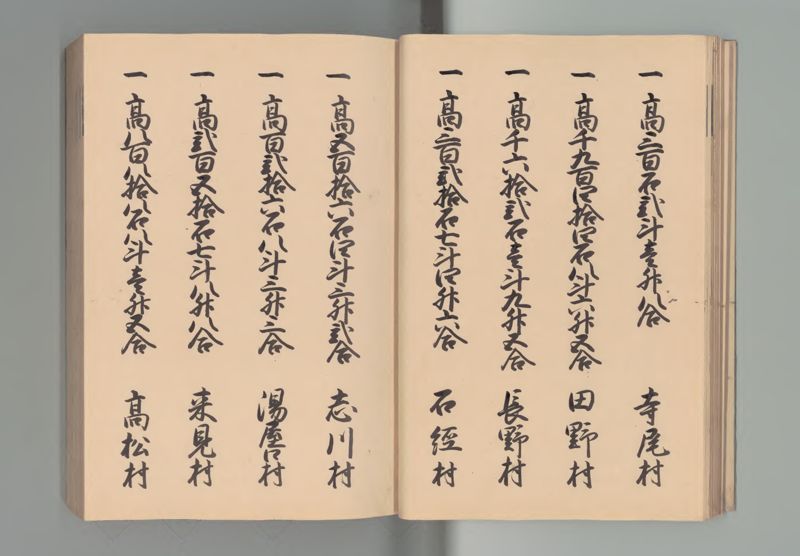 一 高三百石弐斗壱升八合 寺尾村
一 高千九百四拾四石八斗六升五合 田野村
一 高千六拾弐石壱斗九升五合 長野村
一 高三百弐拾石七斗四升六合 石経村
一 高五百拾六石四斗三升弐合 志川村
一 高百弐拾六石八斗三升三合 湯屋口村
一 高弐百五拾石七斗八升八合 来見村
一 高八百八拾八石八斗壱升五合 高松村